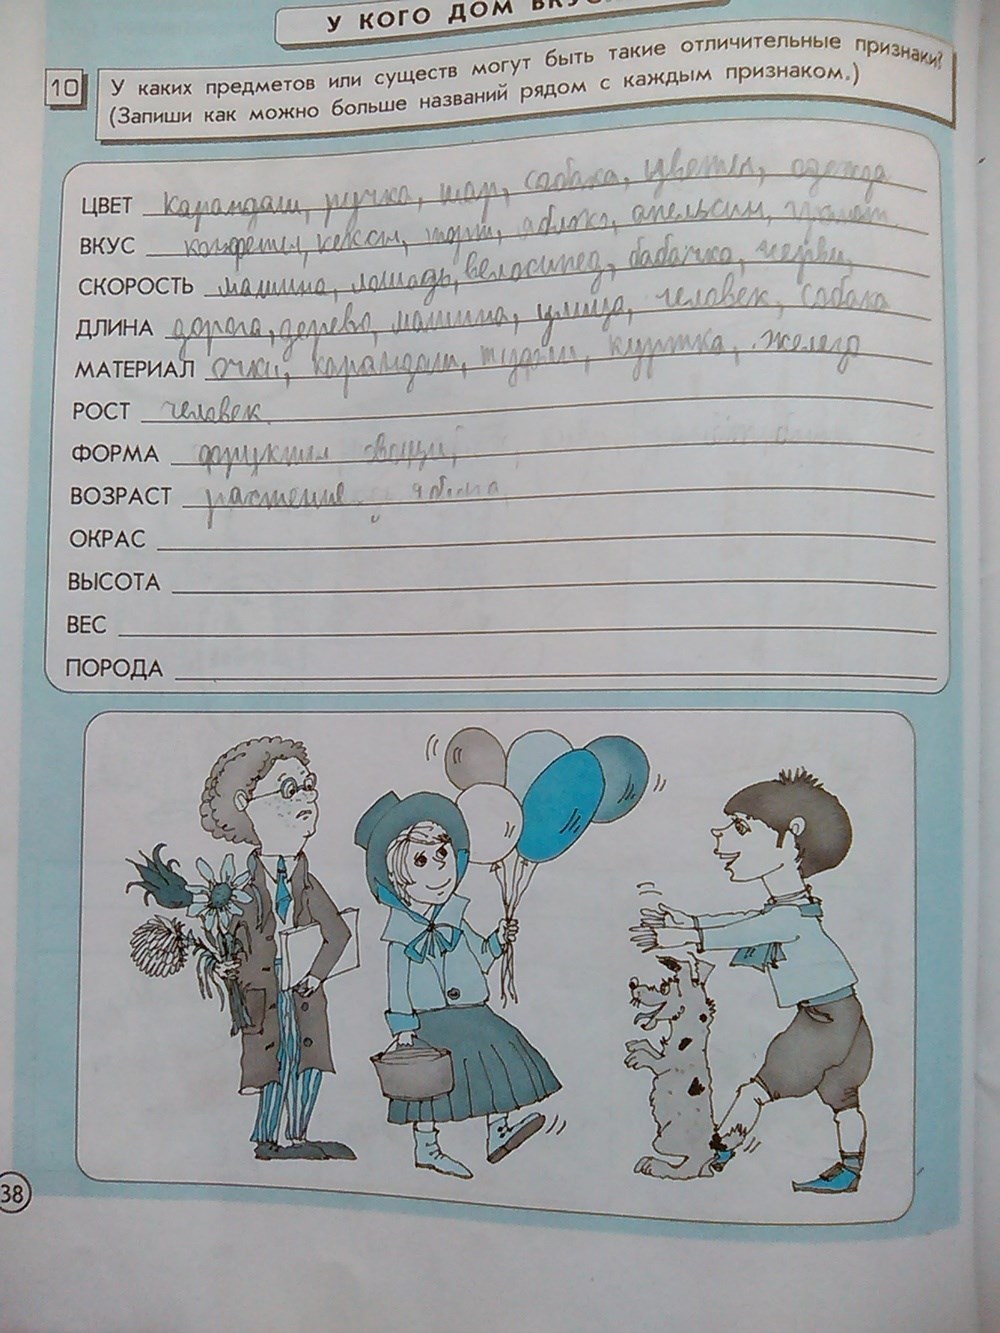 У КОГО ДОМ
10
У каких предметов или существ могут быть такие отличительные признаки?
(Запиши как можно больше названий рядом с каждым признаком.)
ЦВЕТ карандаш, ручка, шар, собака, цветы, одежда
ВКУС конфеты, кексы, торт, яблоко, апельсин,
СКОРОСТЬ машина, лошадь, велосипед, бабочка, черви
ДЛИНА дорога, дерево, машина, улица, человек, собака
МАТЕРИАЛ очки, карандаш, куртка, железо
РОСТ человек
ФОРМА фрукты овощи
ВОЗРАСТ растение
ОКРАС
ВЫСОТА
ВЕС
ПОРОДА
38